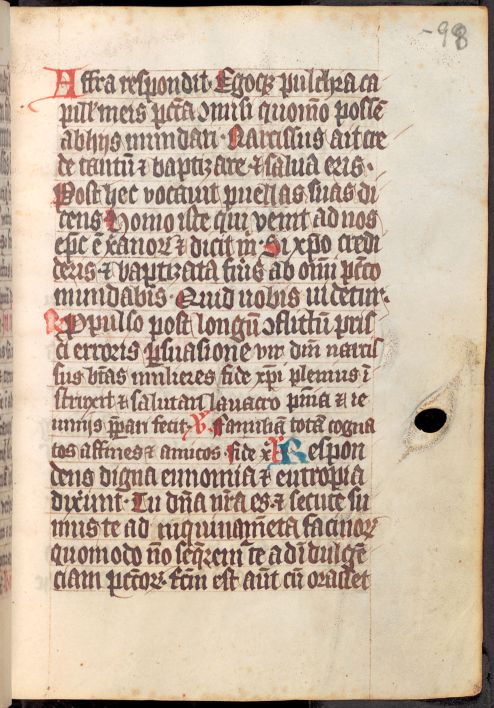 -98
Affra respondit. Egoqꝫ pulchra ca
pill' meis pctā ɔmisi quomō posse
ab hijs mundari. Narcissus ait cre
de tantū ⁊ baptizare ⁊ salua eris.
Post hec vocauit puellas suas di
cens Homo iste qui venit ad nos
epc̄ ē xānor ⁊ dicit m. Si xp̄o credi
deris ⁊ baptizata fūis ab om̄i pctō
mundabis. Quid uobis uidetur.
Rpulso post longū ɔflictū pris
ci erroris ꝑsuasione vir dni narcis
sus btās mulieres fide xp̄i plenius ī
struxit ⁊ salutari lauacro pnīa ⁊ ie
iunijs p̄pari fecit. V. Familiā totā cogna
tos affines ⁊ amicos. fide x R Respon
dens digna eunomia ⁊ eutropia
dixūnt. Tu dn̄a nr̄a es ⁊ secute su
mus te ad inquinamēta facinor
quomodo nō seqrem̄ te ad īdulgē
ciam pctōr. Fcm̄ est aūt cū oraret